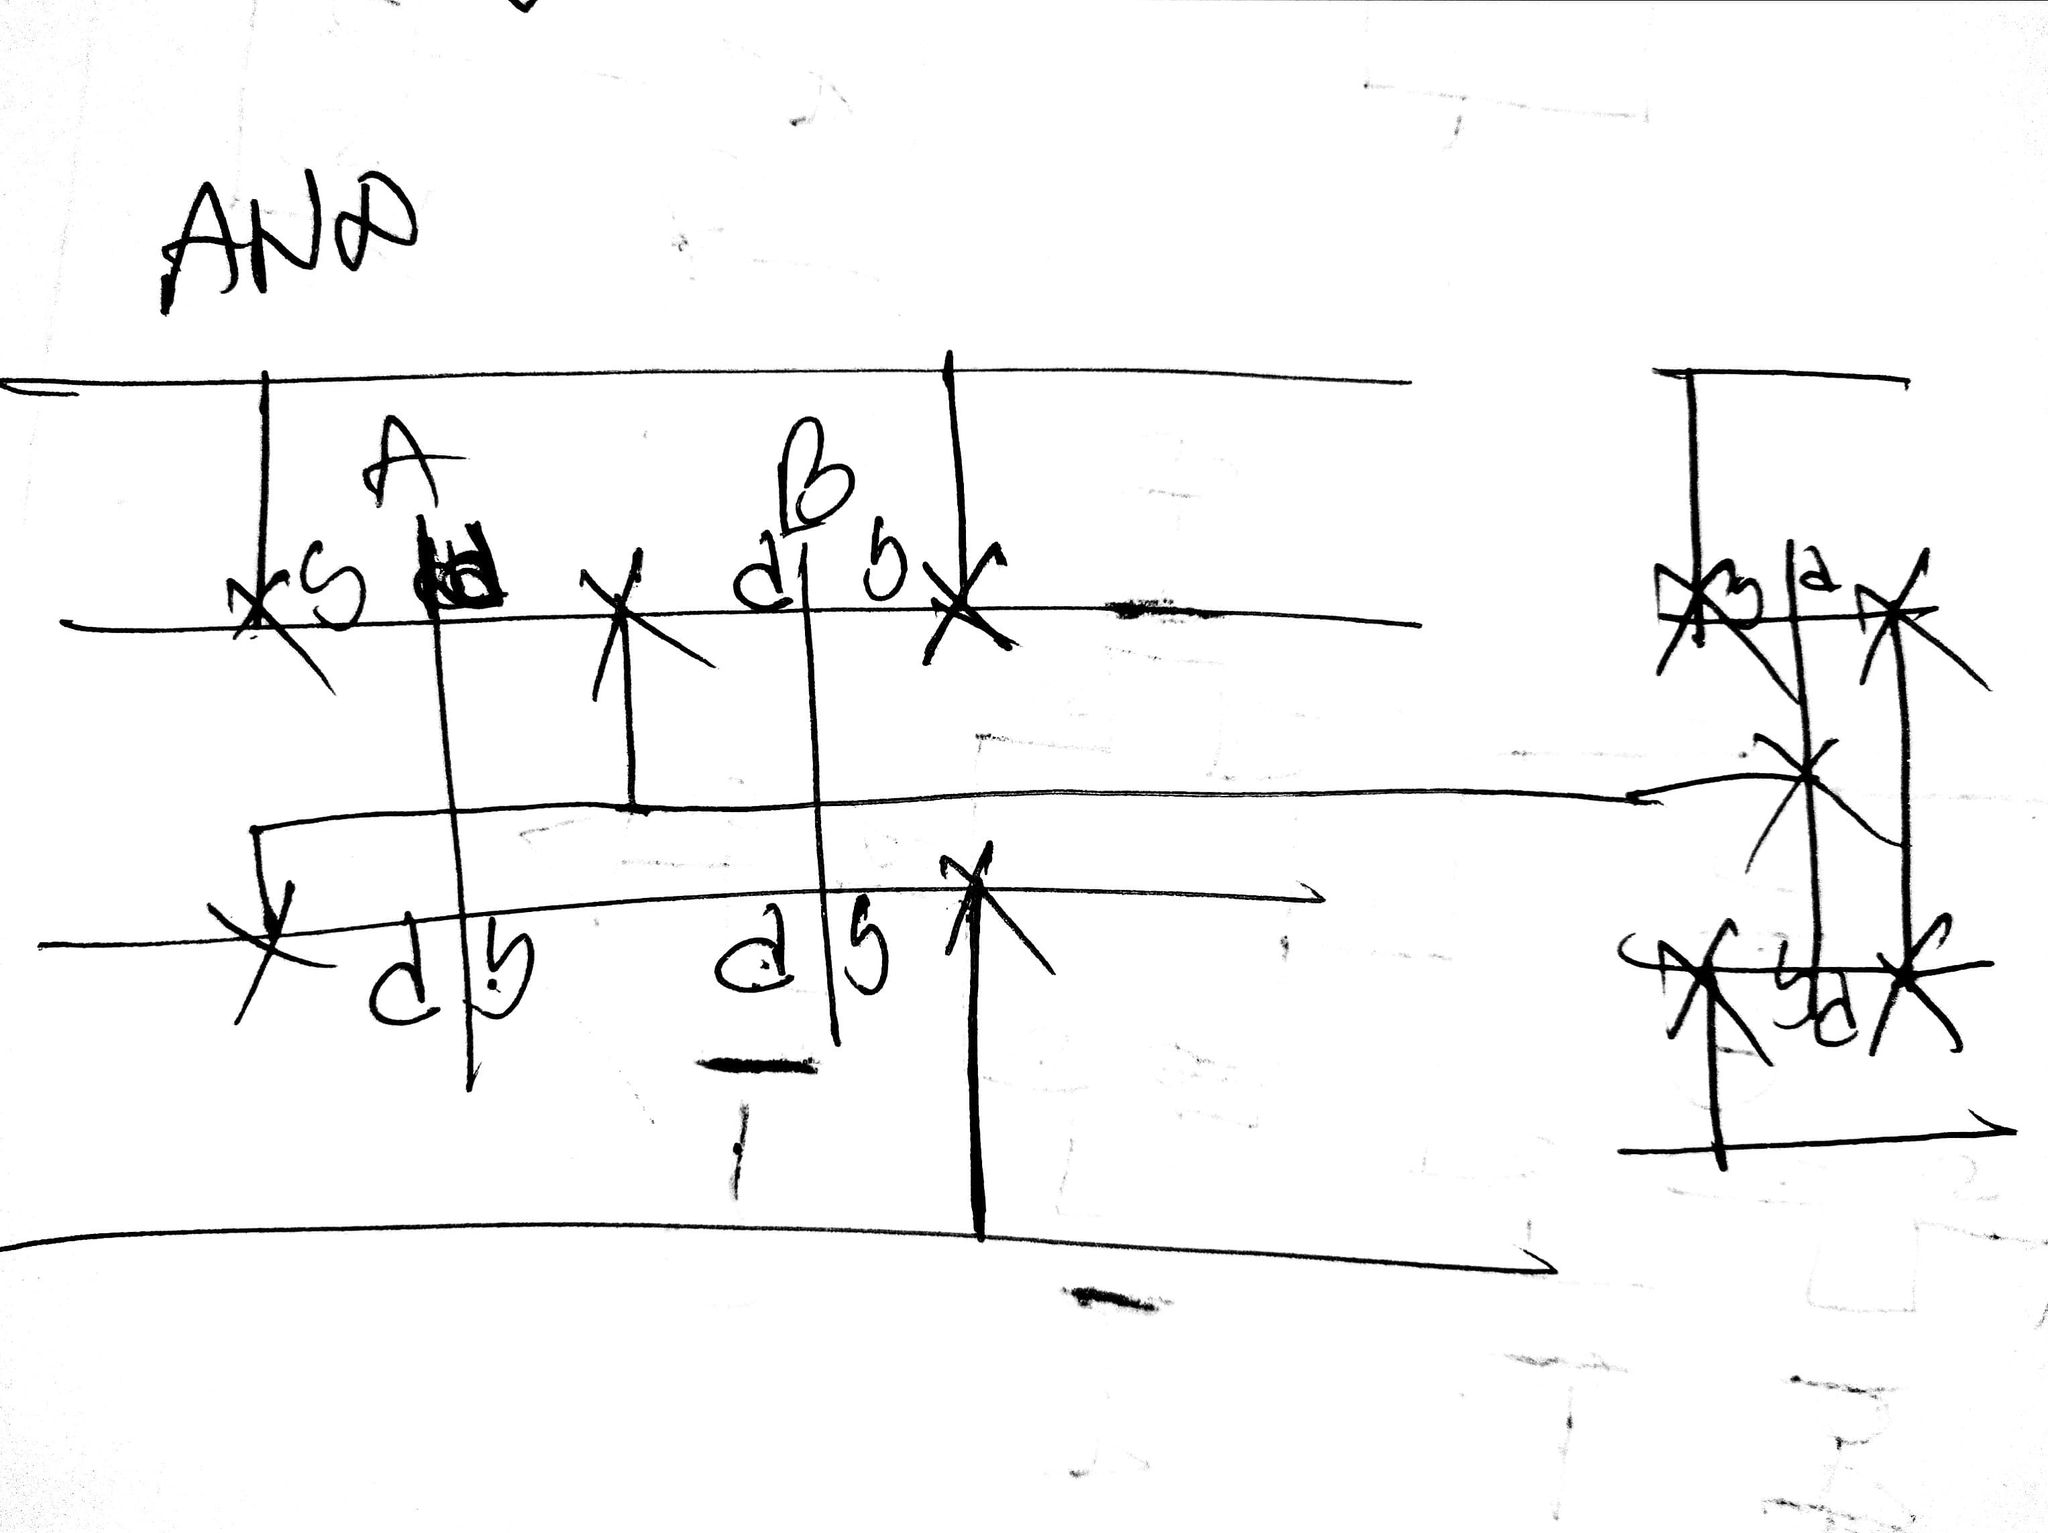 AND
A B
S d d S
S d
d S d S
S d